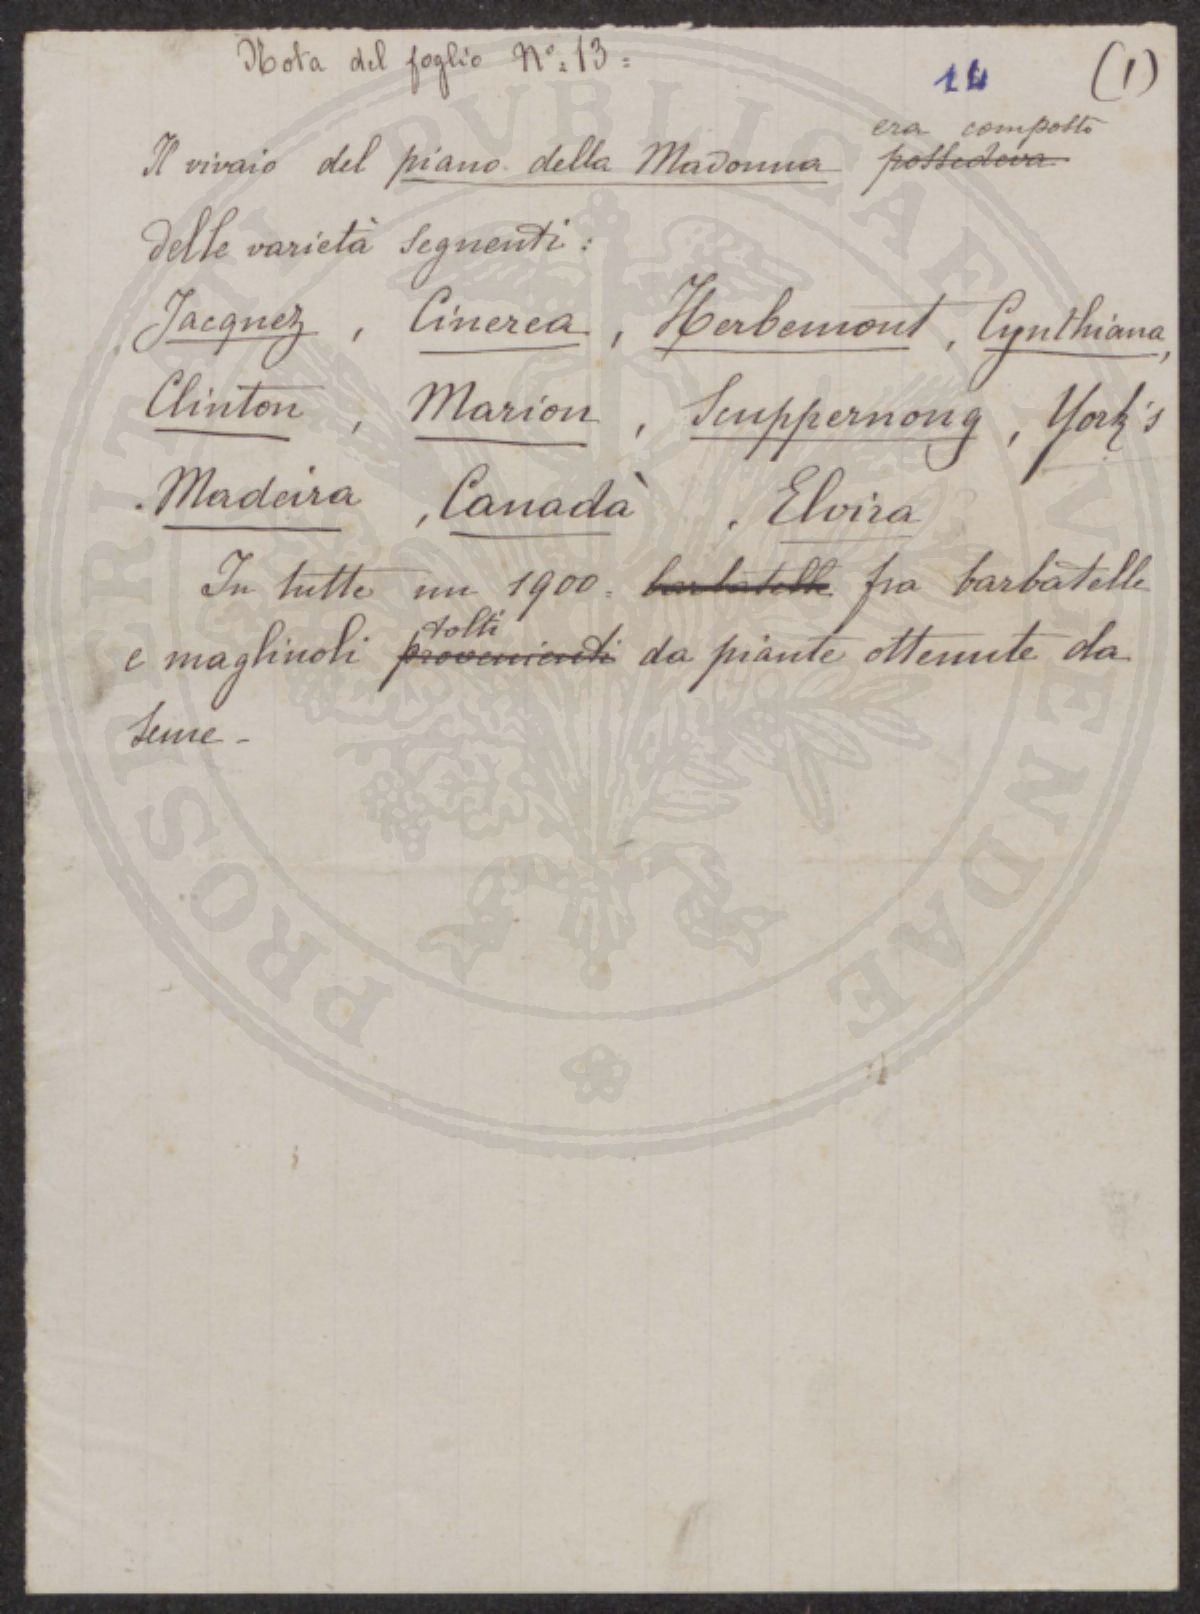 Nota del foglio Nº. 13.
14 (1)
era composto
Il vivaio del piano della Madonna possedeva
delle varietà seguenti:
Jacquez, Cinerea, Herbemont, Cynthiana,
Clinton, Marion, Scuppernong, York's
Madeira, Canadà, Elvira
In tutte un 1900. barbatelle fra barbatelle
tolti
e magliuoli provenienti da piante ottenute da
seme -
PROSPERITATI PVBLICAE AVGENDAE